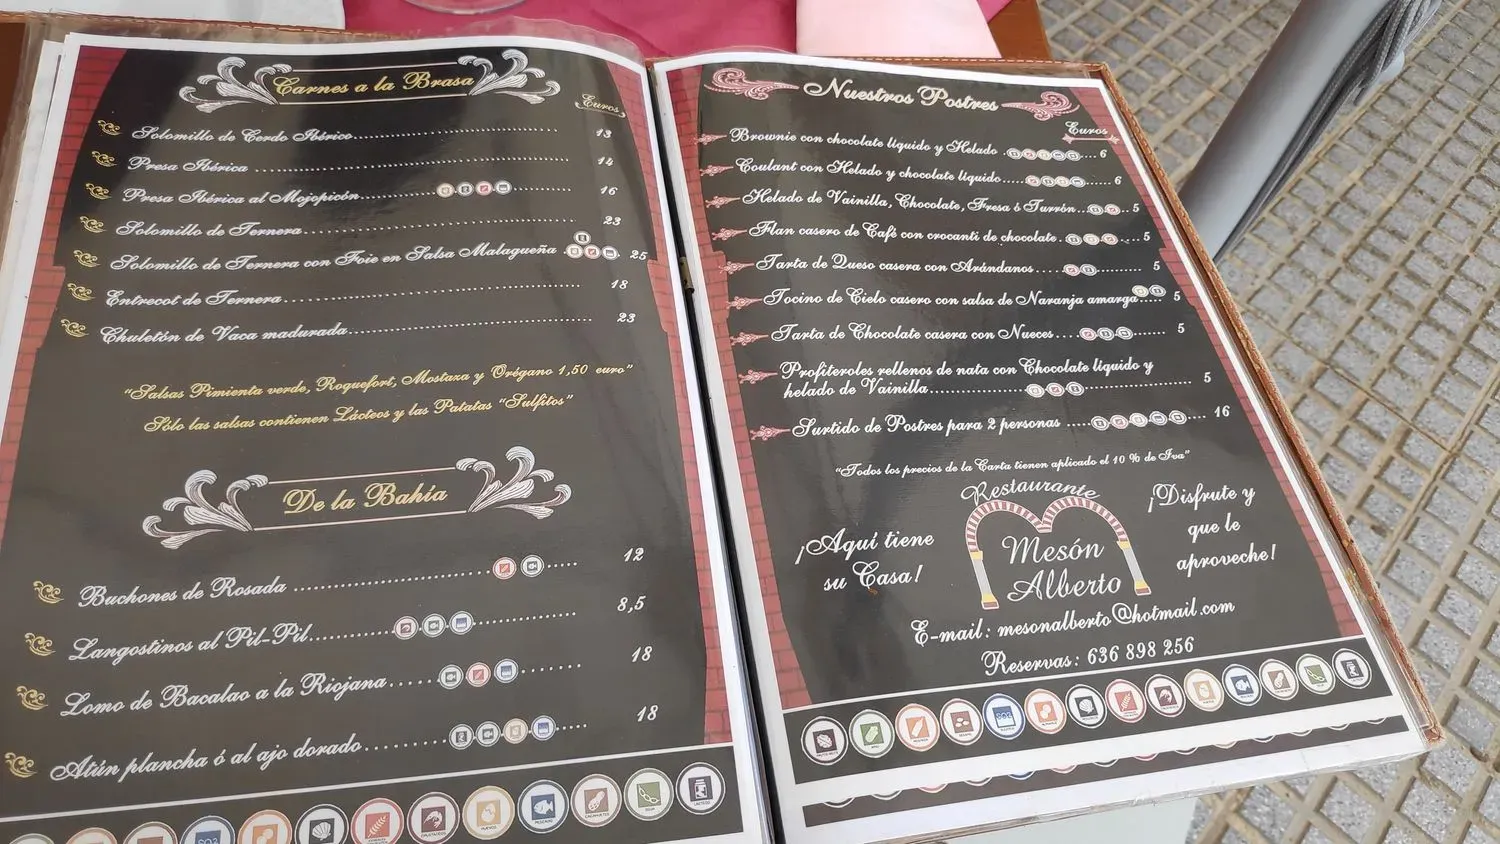 Carnes a la Brasa
Euros
Solomillo de Cerdo Ibérico 13
Presa Ibérica 14
Presa Ibérica al Mojopicón 16
Solomillo de Ternera 23
Solomillo de Ternera con Foie en Salsa Malagueña 25
Entrecot de Ternera 18
Chuletón de Vaca madurada 23
"Salsas Pimienta verde, Roquefort, Mostaza y Orégano 1,50 euro"
Sólo las salsas contienen Lácteos y las Patatas "Sulfitos"
De la Bahía
Buchones de Rosada 12
Langostinos al Pil-Pil 8,5
Lomo de Bacalao a la Riojana 18
Atún plancha ó al ajo dorado 18
Nuestros Postres
Euros
Brownie con chocolate líquido y Helado 6
Coulant con Helado y chocolate líquido 6
Helado de Vainilla, Chocolate, Fresa ó Turrón 5
Flan casero de Café con crocanti de chocolate 5
Tarta de Queso casera con Arándanos 5
Tocino de Cielo casero con salsa de Naranja amarga 5
Tarta de Chocolate casera con Nueces 5
Profiteroles rellenos de nata con Chocolate líquido y
helado de Vainilla 5
Surtido de Postres para 2 personas 16
"Todos los precios de la Carta tienen aplicado el 10 % de Iva"
¡Aquí tiene
su Casa!
Restaurante
Mesón
Alberto
¡Disfrute y
que le
aproveche!
E-mail: mesonalberto@hotmail.com
Reservas: 636 898 256